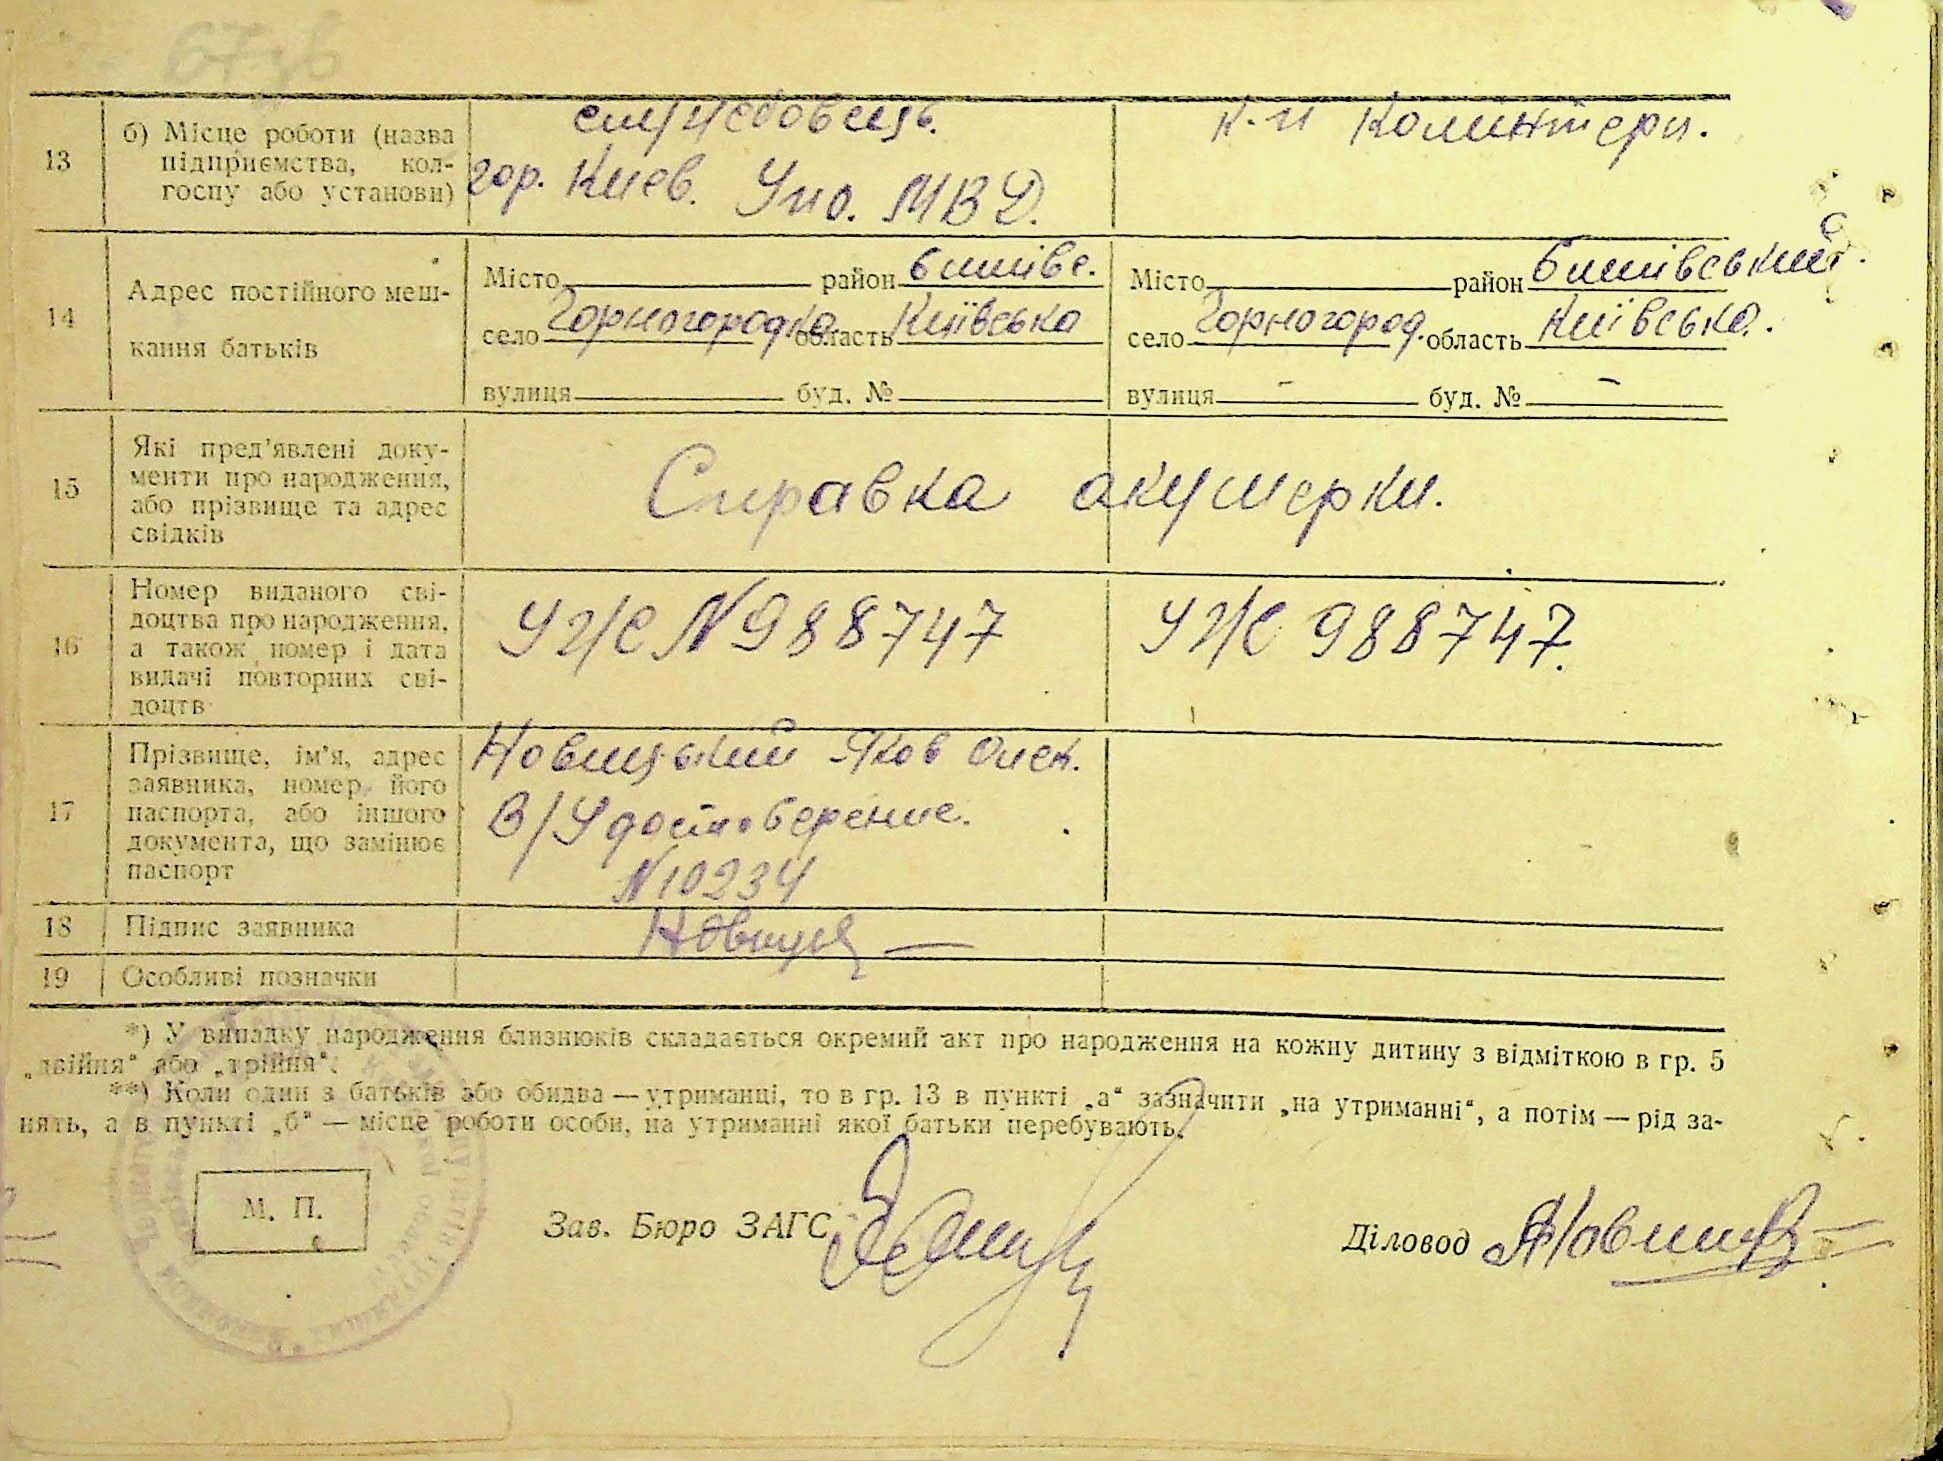 13
б) Місце роботи (назва
підприємства, кол-
госпу або установи)
службовець.
гор. Киев. Упо. МВД.
к-п Комінтерн.
14
Адрес постійного меш-
кання батьків
Місто район бишівс.
село Горногородка. область Київська
вулиця буд. №
Місто район бишівський
село Горногород. область Київська.
вулиця - буд. № -
15
Які пред'явлені доку-
менти про народження,
або прізвище та адрес
свідків
Справка акушерки.
16
Номер виданого сві-
доцтва про народження,
а також номер і дата
видачі повторних сві-
доцтв
УЖ N 988747
УЖ 988747.
17
Прізвище, ім'я, адрес
заявника, номер його
паспорта, або іншого
документа, що замінює
паспорт
Новицький Яков Олек.
В/Удостоверение.
N 10234
18
Підпис заявника
Новицк
19
Особливі позначки
*) У випадку народження близнюків складається окремий акт про народження на кожну дитину з відміткою в гр. 5
„двійня“ або „трійня“.
**) Коли один з батьків або обидва — утриманці, то в гр. 13 в пункті „а“ зазначити „на утриманні“, а потім — рід за-
нять, а в пункті „б“ — місце роботи особи, на утриманні якої батьки перебувають.
М. П.
Зав. Бюро ЗАГС
Діловод